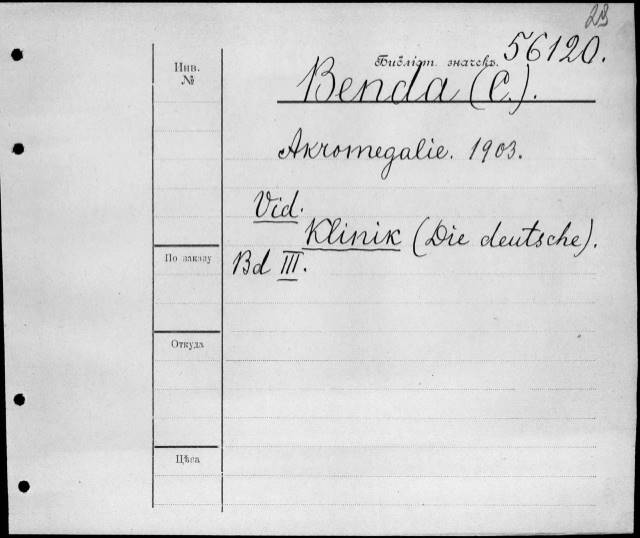 23
Библіот. значекъ. 56120.
Инв.
№
Benda (C.).
Akromegalie. 1903.
Vid.
Klinik (Die deutsche).
Bd III.
По заказу
Откуда
Цѣна